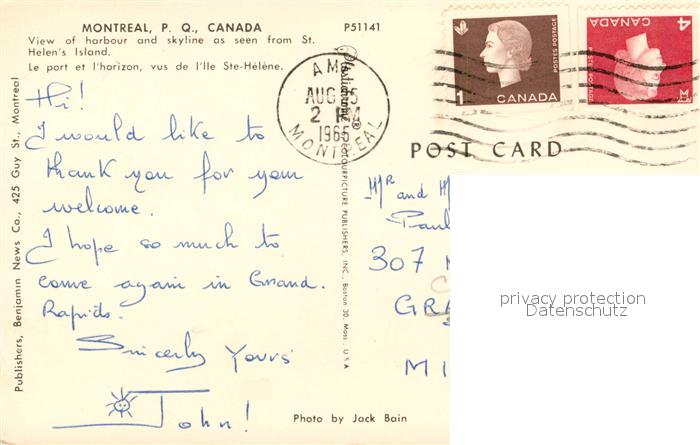 MONTREAL, P. Q., CANADA P51141
View of harbour and skyline as seen from St.
Helen's Island.
Le port et l'horizon, vus de l'Ile Ste-Hélène.
Hi!
I would like to
thank you for your
welcome.
I hope so much to
come again in Grand
Rapids.
Sincerly Yours
John!
Photo by Jack Bain
Publishers, Benjamin News Co., 425 Guy St., Montreal
Plastichrome® COLOURPICTURE PUBLISHERS, INC., Boston 30, Mass., U.S.A
AM
AUG 
2 PM
1965
MONTREAL
1 CANADA
POSTES POSTAGE
CANADA 4
POSTES POSTAGE
POST CARD
Mr and M
Paul
307
GRA
MI
privacy protection
Datenschutz